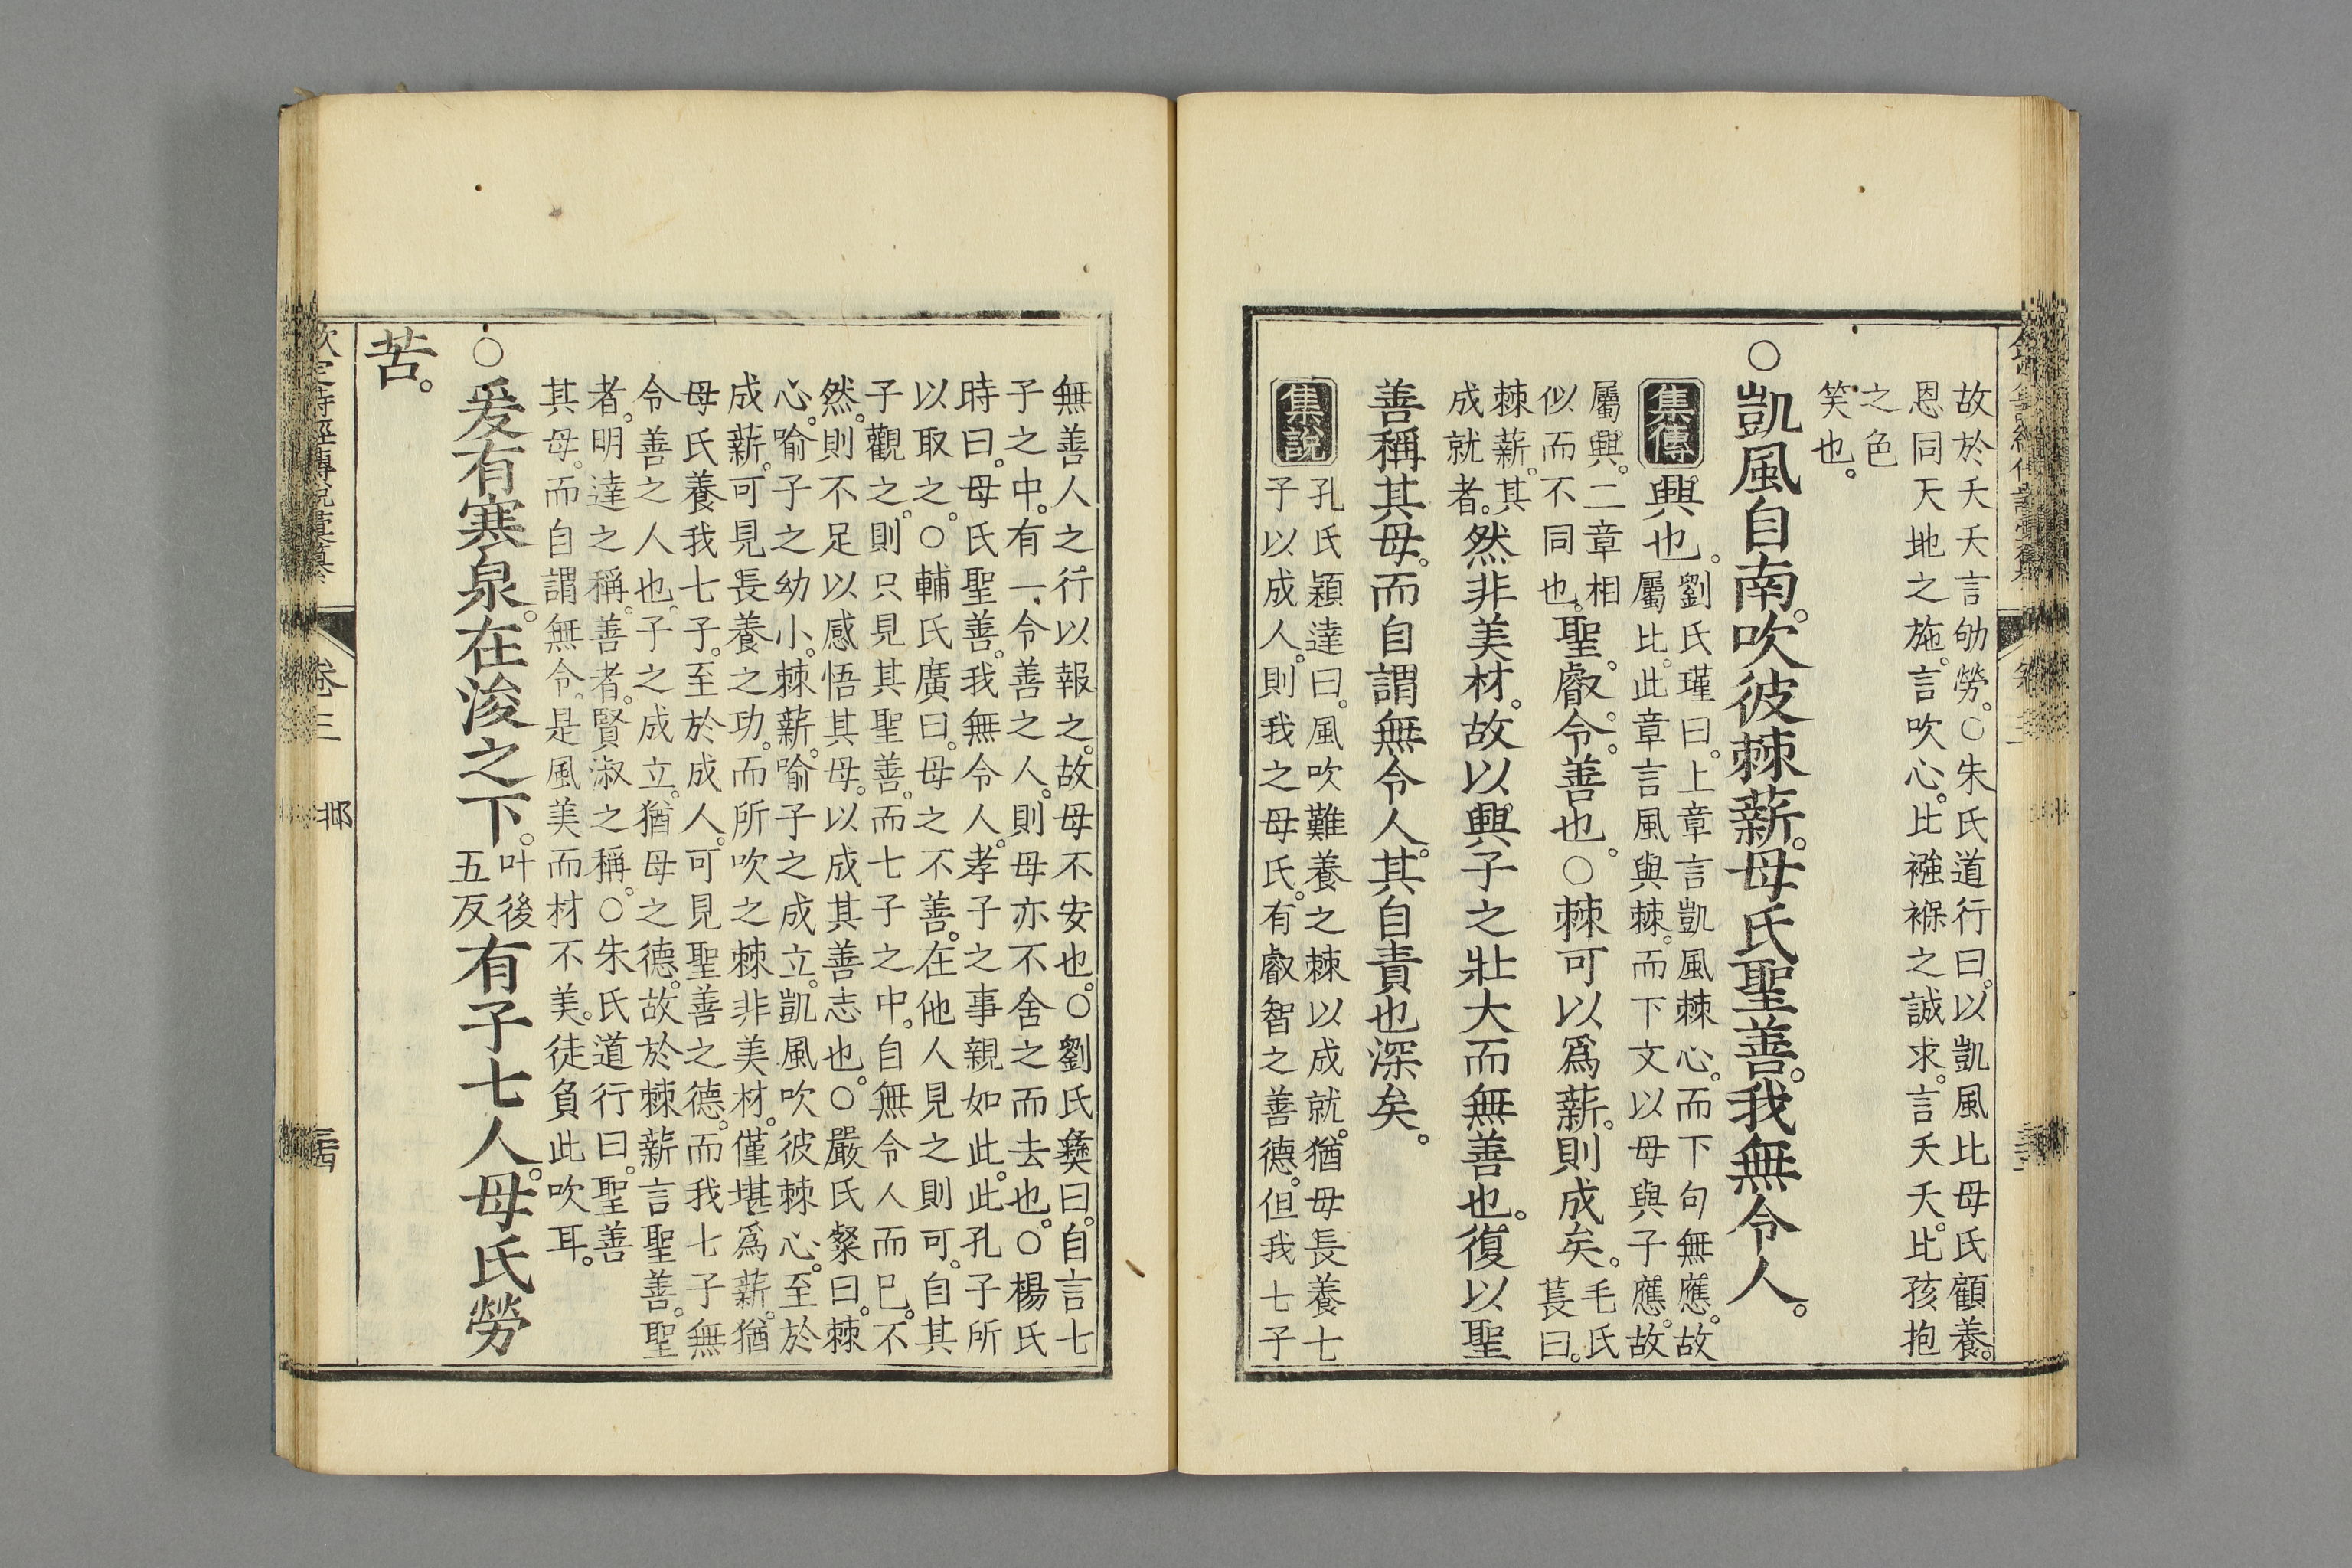 故於夭夭言劬勞。○朱氏道行曰。以凱風比母氏顧養。
恩同天地之施。言吹心。比襁褓之誠求。言夭夭。比孩抱
之色
笑也。
○凱風自南。吹彼棘薪。母氏聖善。我無令人。
集傳
興也。
劉氏瑾曰。上章言凱風棘心。而下句無應。故
屬比。此章言風與棘。而下文以母與子應。故
屬興。二章相
似而不同也。
聖。睿。令。善也。○棘可以爲薪。則成矣。
毛氏
萇曰。
棘薪。其
成就者。
然非美材。故以興子之壯大而無善也。復以聖
善稱其母。而自謂無令人。其自責也深矣。
集說
孔氏穎達曰。風吹難養之棘以成就。猶母長養七
子以成人。則我之母氏。有叡智之善德。但我七子
無善人之行以報之。故母不安也。○劉氏彝曰。自言七
子之中。有一令善之人。則母亦不舍之而去也。○楊氏
時曰。母氏聖善。我無令人。孝子之事親如此。此孔子所
以取之。○輔氏廣曰。母之不善。在他人見之則可。自其
子觀之。則只見其聖善。而七子之中。自無令人而已。不
然。則不足以感悟其母。以成其善志也。○嚴氏粲曰。棘
心。喻子之幼小。棘薪。喻子之成立。凱風吹彼棘心。至於
成薪。可見長養之功。而所吹之棘非美材。僅堪爲薪。猶
母氏養我七子。至於成人。可見聖善之德。而我七子無
令善之人也。子之成立。猶母之德。故於棘薪言聖善。聖
者。明達之稱。善者。賢淑之稱。○朱氏道行曰。聖善
其母。而自謂無令。是風美而材不美。徒負此吹耳。
○爰有寒泉。在浚之下。
叶後
五反
有子七人。母氏勞
苦。
欽定詩經傳說彙纂
卷三
邶
三四